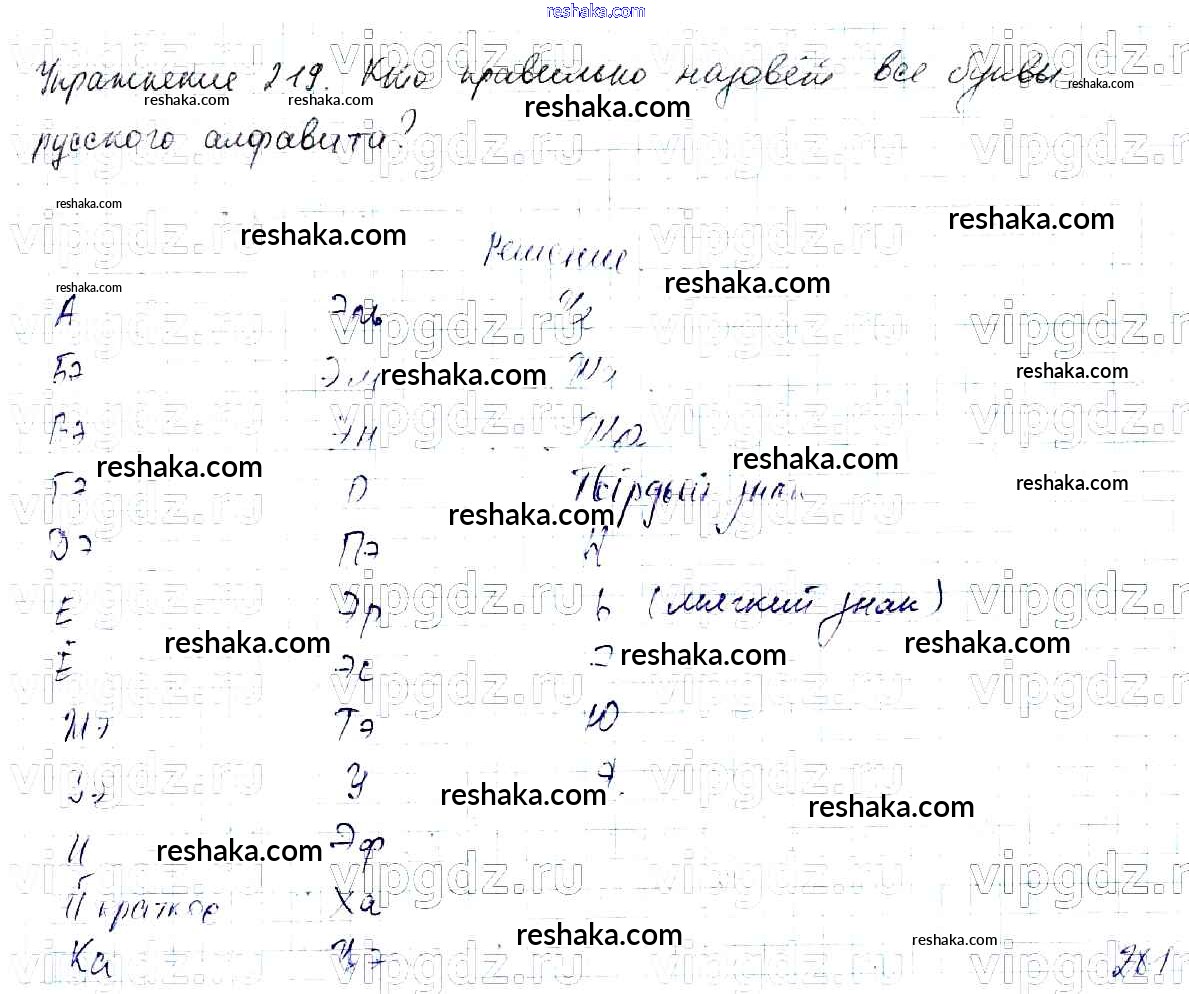 reshaka.com
Упражнение 219. Кто правильно назовёт все буквы
русского алфавита?
Решение
А Эль Че
Бэ Эм Ша
Вэ Эн Ща
Гэ О Твёрдый знак
Дэ Пэ Ы
Е Эр ь (мягкий знак)
Ё Эс Э
Жэ Тэ Ю
Зэ У Я
И Эф
Й краткое Ха
Ка Цэ